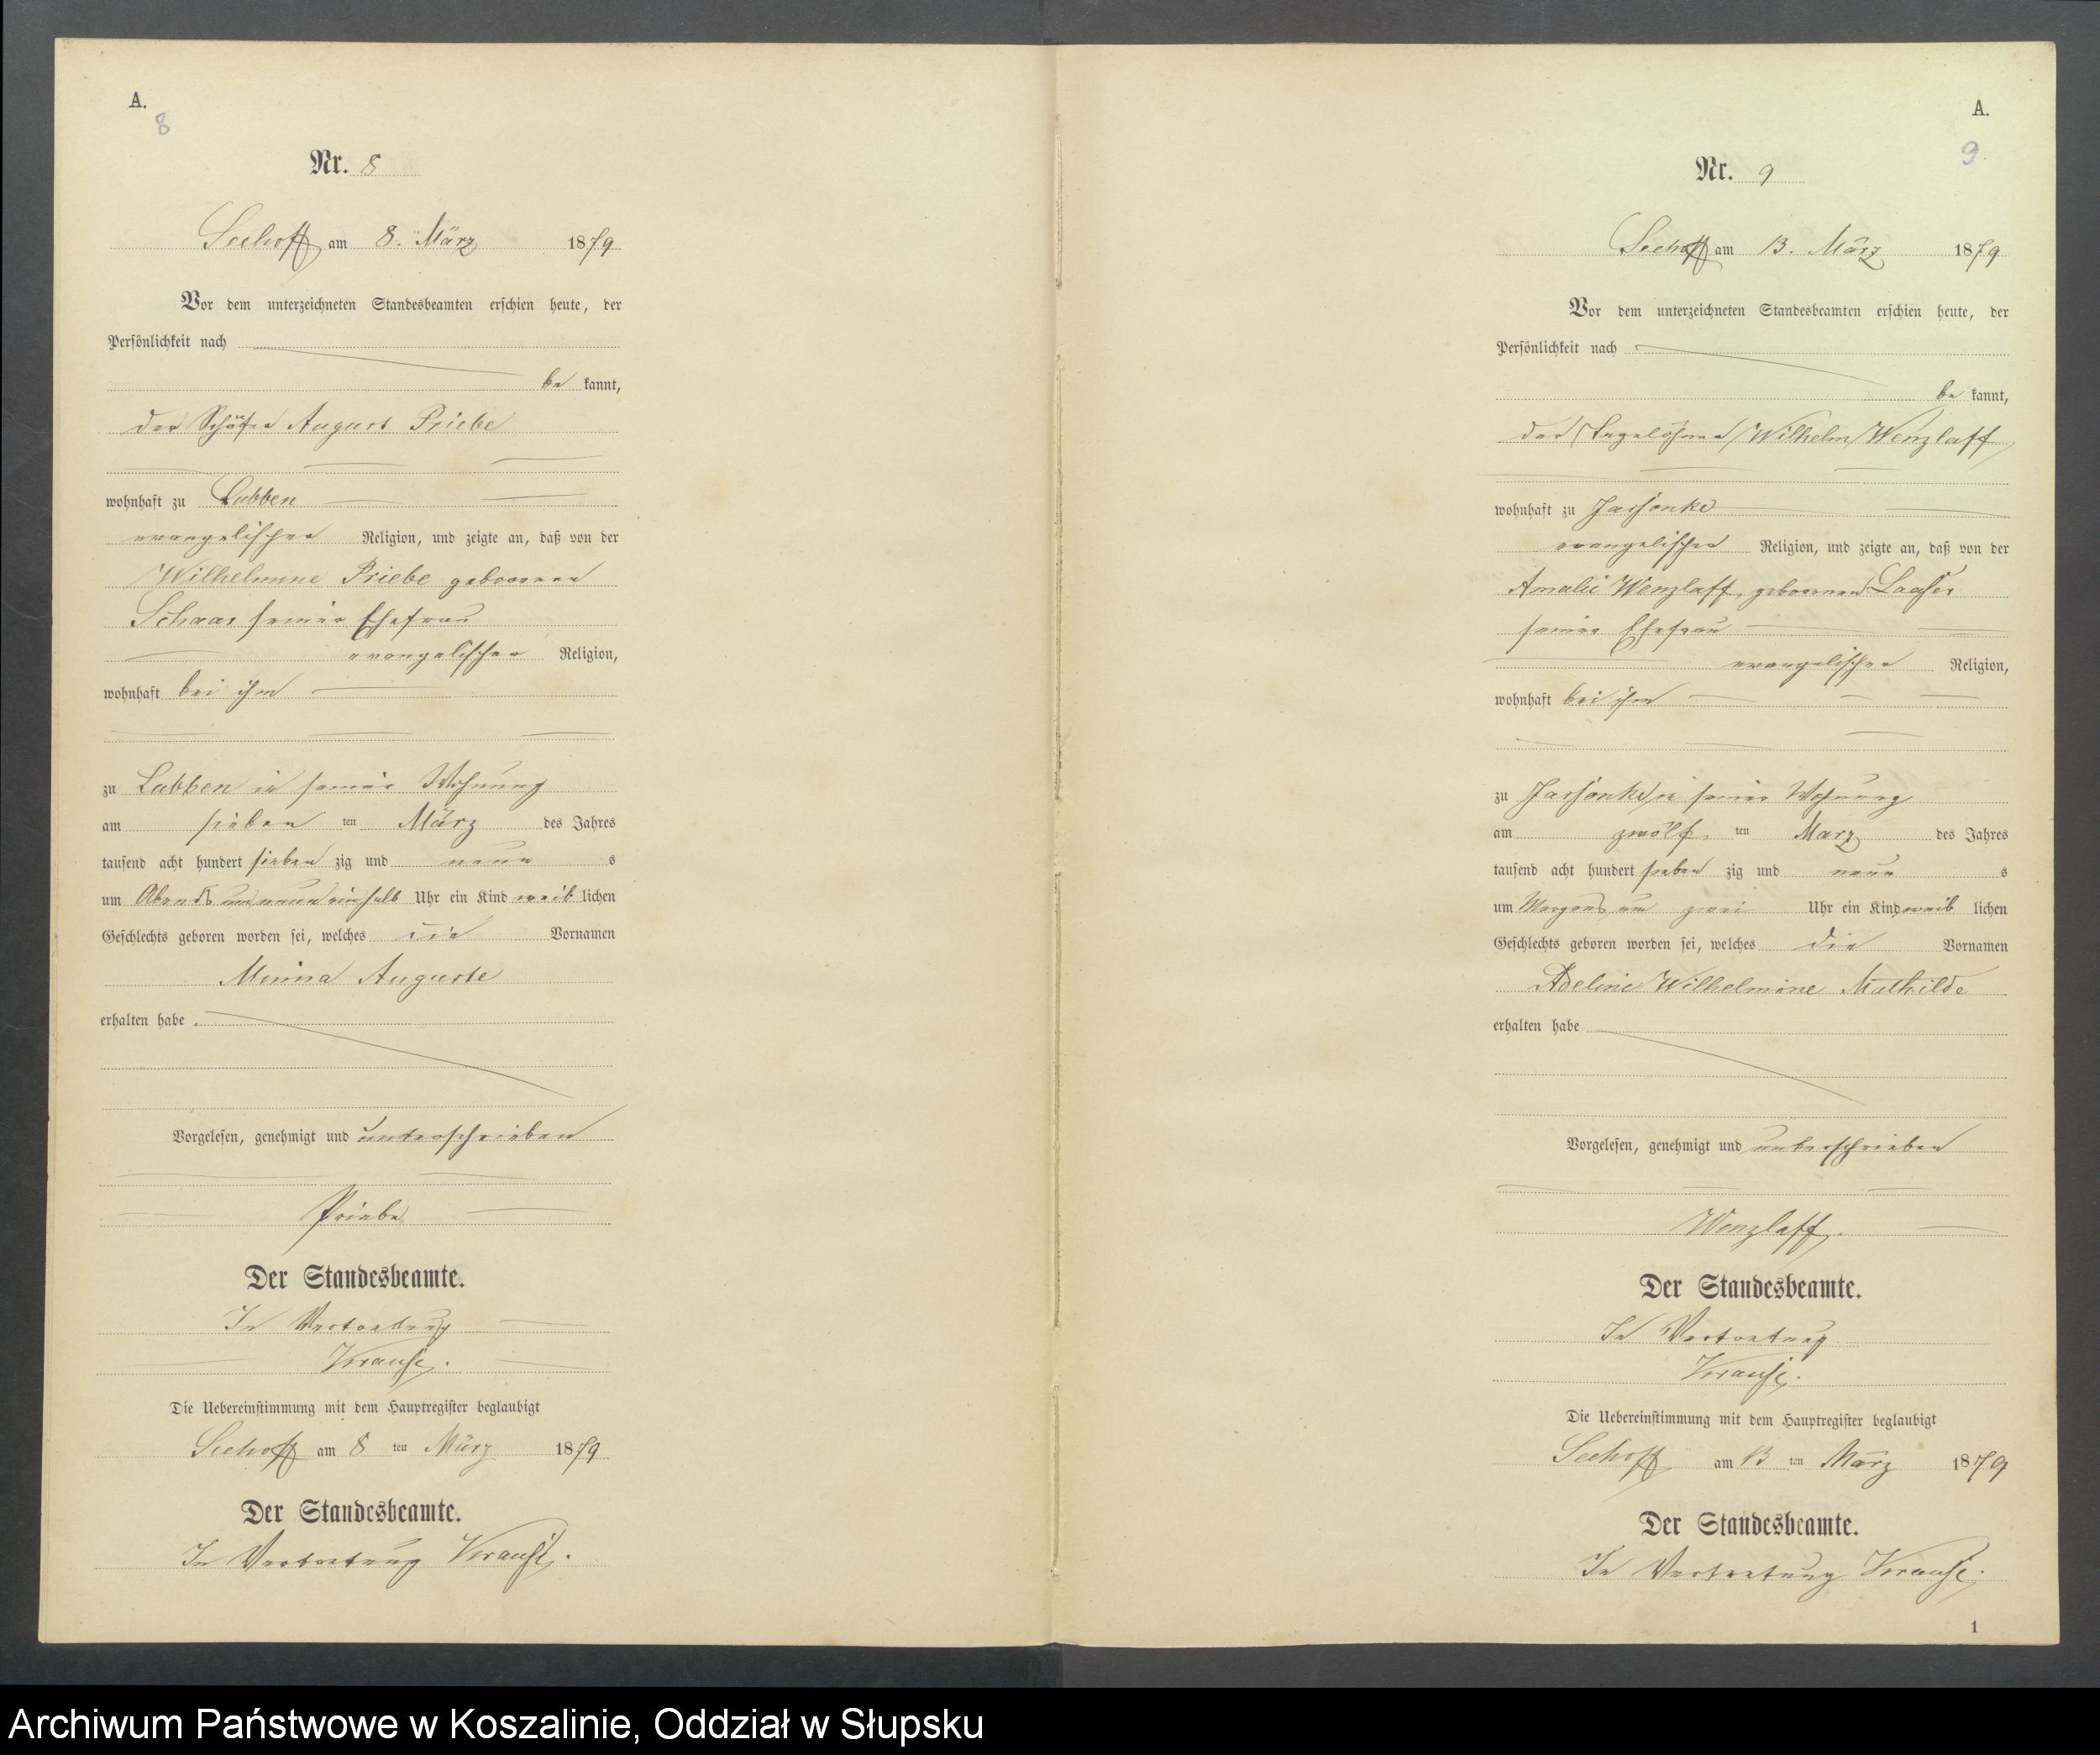 A.
8
Nr. 8
Seehoff am 8. März 1879
Vor dem unterzeichneten Standesbeamten erschien heute, der
Persönlichkeit nach
be kannt,
der Schäfer August Priebe
wohnhaft zu Lubben
evangelischer Religion, und zeigte an, daß von der
Wilhelmine Priebe geborenen
Schaar seiner Ehefrau
evangelischer Religion,
wohnhaft bei ihm
zu Lubben in seiner Wohnung
am sieben ten März des Jahres
tausend acht hundert sieben zig und neun s
um Abends um neun einhalb Uhr ein Kind weib lichen
Geschlechts geboren worden sei, welches die Vornamen
Minna Auguste
erhalten habe.
Vorgelesen, genehmigt und unterschrieben
Priebe
Der Standesbeamte.
In Vertretung
Krause.
Die Uebereinstimmung mit dem Hauptregister beglaubigt
Seehoff am 8 ten März 1879
Der Standesbeamte.
In Vertretung Krause.
A.
9.
Nr. 9
Seehoff am 13. März 1879
Vor dem unterzeichneten Standesbeamten erschien heute, der
Persönlichkeit nach
be kannt,
der Tagelöhner Wilhelm Wenzlaff
wohnhaft zu Jassonke
evangelischer Religion, und zeigte an, daß von der
Amalie Wenzlaff, geborenen Laaser
seiner Ehefrau
evangelischer Religion,
wohnhaft bei ihm
zu Jassonke in seiner Wohnung
am zwölf ten März des Jahres
tausend acht hundert sieben zig und neun s
um Morgens um zwei Uhr ein Kind weib lichen
Geschlechts geboren worden sei, welches die Vornamen
Adeline Wilhelmine Mathilde
erhalten habe
Vorgelesen, genehmigt und unterschrieben
Wenzlaff.
Der Standesbeamte.
In Vertretung
Krause.
Die Uebereinstimmung mit dem Hauptregister beglaubigt
Seehoff am 13 ten März 1879
Der Standesbeamte.
In Vertretung Krause.
1
Archiwum Państwowe w Koszalinie, Oddział w Słupsku